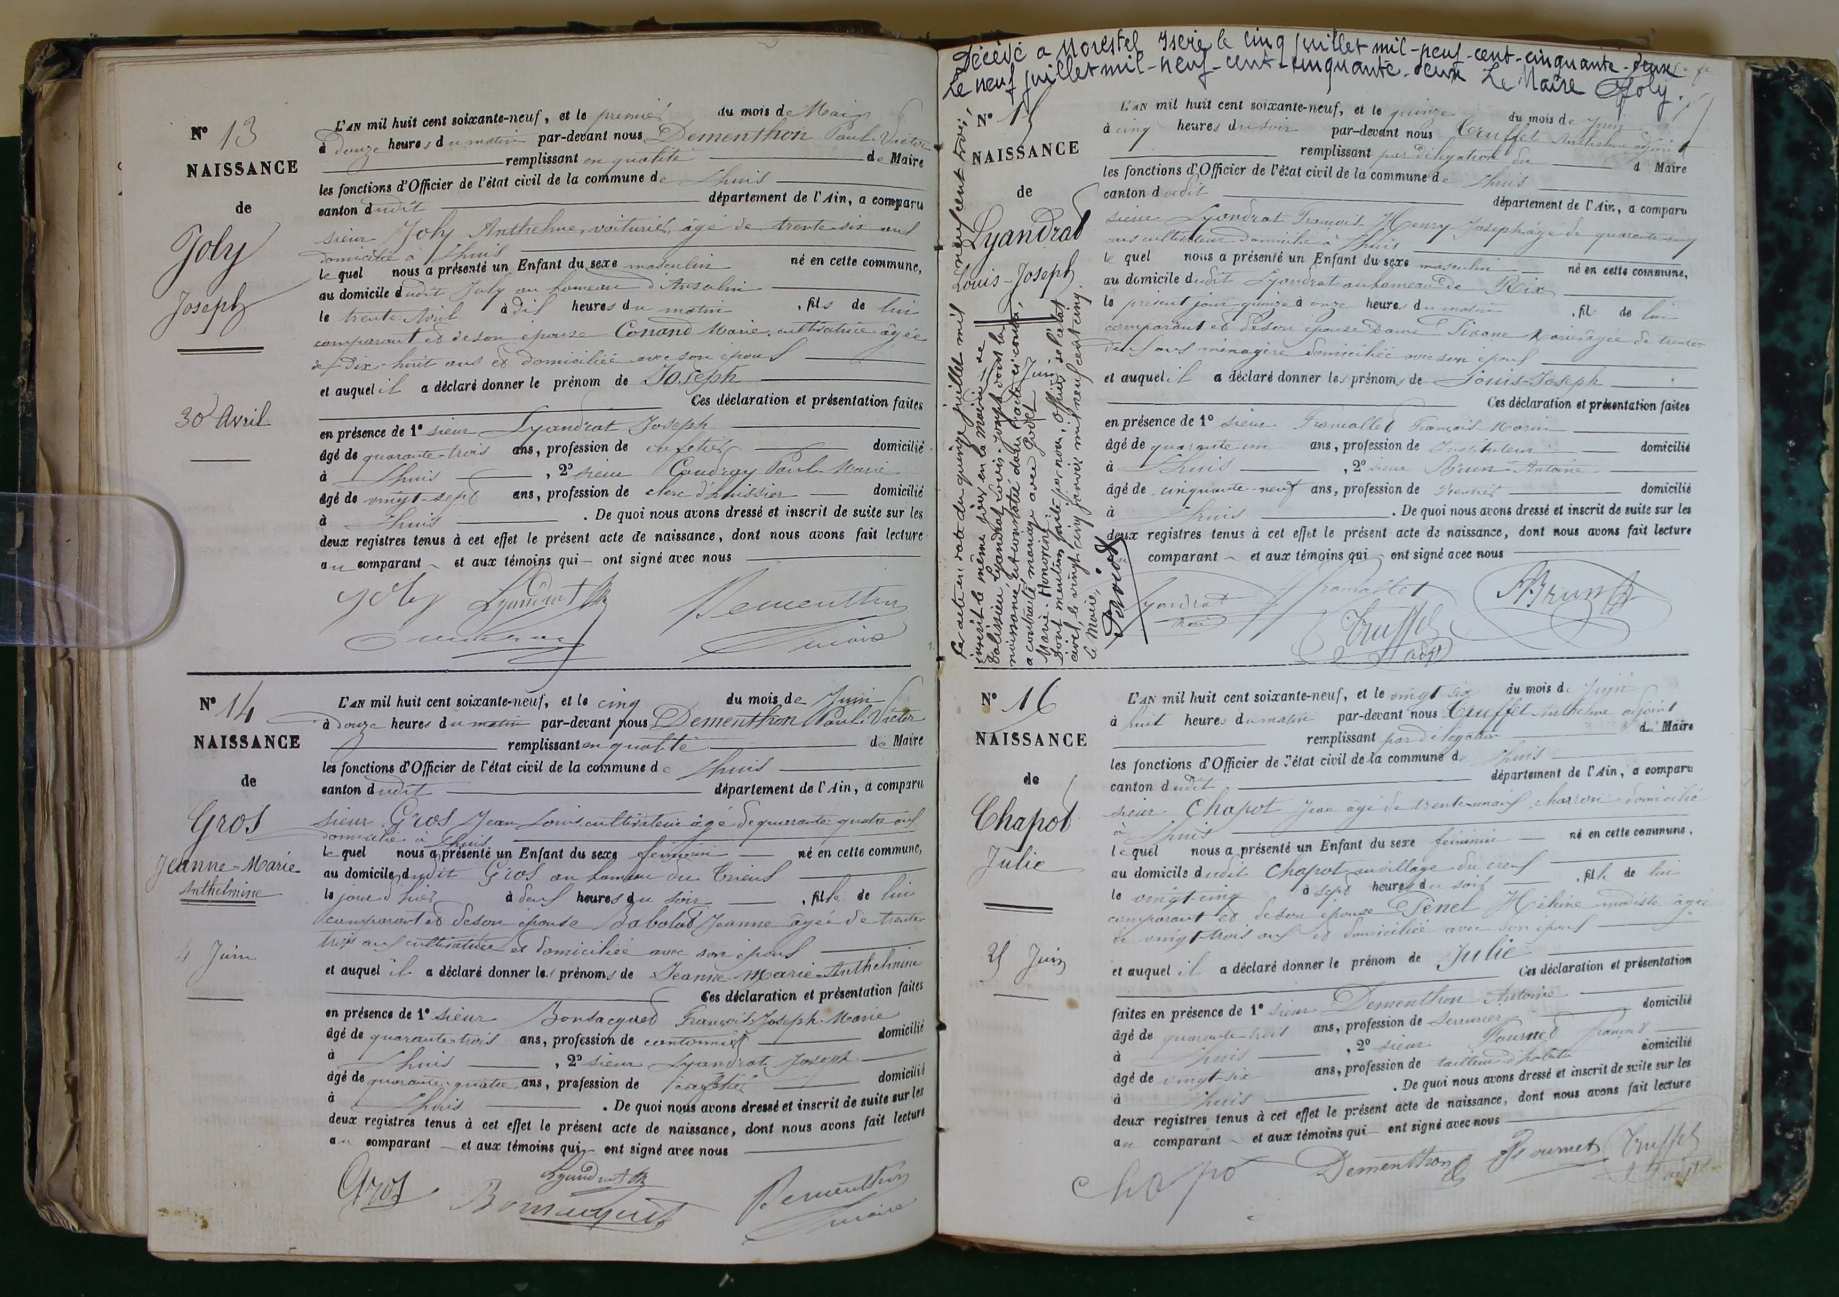 N° 13
NAISSANCE
de
Joly
Joseph
30 Avril
L'AN mil huit cent soixante-neuf, et le premier du mois de Mai
à douze heures du matin par-devant nous Dementhon Paul Victor
remplissant en qualité de Maire
les fonctions d'Officier de l'état civil de la commune de Lhuis
canton dudit département de l'Ain, a comparu
sieur Joly Anthelme, voiturier, âgé de trente-six ans
domicilié à Lhuis
le quel nous a présenté un Enfant du sexe masculin né en cette commune,
au domicile dudit Joly au hameau d'Ansolin
le trente Avril à dix heures du matin, fils de lui
comparant et de son épouse Conand Marie, cultivatrice âgée
de Dix-huit ans et domiciliée avec son époux
et auquel il a déclaré donner le prénom de Joseph
Ces déclaration et présentation faites
en présence de 1° sieur Lyandrat Joseph
âgé de quarante-trois ans, profession de domicilié
à Lhuis, 2° sieur Coudray Paul Marie
âgé de vingt-sept ans, profession de clerc d'huissier domicilié
à Lhuis. De quoi nous avons dressé et inscrit de suite sur les
deux registres tenus à cet effet le présent acte de naissance, dont nous avons fait lecture
au comparant et aux témoins qui ont signé avec nous
Joly Lyandrat Dementhon
maire
N° 14
NAISSANCE
de
Gros
Jeanne-Marie
Anthelmine
4 Juin
L'AN mil huit cent soixante-neuf, et le cinq du mois de Juin
à Douze heures du matin par-devant nous Dementhon Paul Victor
remplissant en qualité de Maire
les fonctions d'Officier de l'état civil de la commune de Lhuis
canton dudit département de l'Ain, a comparu
sieur Gros Jean Louis cultivateur âgé de quarante quatre ans
domicilié à Lhuis
le quel nous a présenté un Enfant du sexe féminin né en cette commune,
au domicile dudit Gros au hameau du Creux
le jour d'hier à deux heures du soir, fille de lui
comparant et de son épouse Babolat Jeanne âgée de trente
trois ans cultivatrice et domiciliée avec son époux
et auquel il a déclaré donner les prénoms de Jeanne Marie-Anthelmine
Ces déclaration et présentation faites
en présence de 1° sieur Bonsacquet François-Joseph-Marie
âgé de quarante-trois ans, profession de cantonnier domicilié
à Lhuis, 2° sieur Lyandrat Joseph
âgé de quarante-quatre ans, profession de domicilié
à Lhuis. De quoi nous avons dressé et inscrit de suite sur les
deux registres tenus à cet effet le présent acte de naissance, dont nous avons fait lecture
au comparant et aux témoins qui ont signé avec nous
Gros Lyandrat
Bonsacquet Dementhon
maire
Décédé a Morestel Isère le cinq juillet mil-neuf-cent-cinquante-deux
Le neuf juillet mil-neuf-cent-cinquante-deux Le Maire Joly
N° 15
NAISSANCE
de
Lyandrat
Louis-Joseph
15 Juin
L'AN mil huit cent soixante-neuf, et le quinze du mois de Juin
à cinq heures du soir par-devant nous Truffet Anthelme adjoint
remplissant par délégation du Maire
les fonctions d'Officier de l'état civil de la commune de Lhuis
canton dudit département de l'Ain, a comparu
sieur Lyandrat François Henry Joseph âgé de quarante cinq
ans cultivateur domicilié à Lhuis
le quel nous a présenté un Enfant du sexe masculin né en cette commune,
au domicile dudit Lyandrat au hameau de Rix
le présent jour quinze à onze heures du matin, fils de lui
comparant et de son épouse Marie âgée de trente
deux ans ménagère domiciliée avec son époux
et auquel il a déclaré donner les prénoms de Louis-Joseph
Ces déclaration et présentation faites
en présence de 1° sieur François Marin
âgé de quarante un ans, profession de Instituteur domicilié
à Lhuis, 2° sieur Brun Antoine
âgé de cinquante-neuf ans, profession de domicilié
à Lhuis. De quoi nous avons dressé et inscrit de suite sur les
deux registres tenus à cet effet le présent acte de naissance, dont nous avons fait lecture
comparant et aux témoins qui ont signé avec nous
Lyandrat Brun
Truffet
adj
Par acte en date du quinze juillet mil neuf cent trois,
inscrit le même jour en la Mairie de
Lyandrat Louis-Joseph dont la
naissance est constatée dans l'acte ci-contre,
a contracté mariage avec Godet
Marie-Honorine.
Dont mention faite par nous, Officier de l'état
civil, le vingt-cinq janvier mil neuf cent cinq.
Le Maire,
N° 16
NAISSANCE
de
Chapot
Julie
25 Juin
L'AN mil huit cent soixante-neuf, et le vingt-six du mois de Juin
à huit heures du matin par-devant nous Truffet Anthelme adjoint
remplissant par délégation du Maire
les fonctions d'Officier de l'état civil de la commune de Lhuis
canton dudit département de l'Ain, a comparu
sieur Chapot Jean âgé de trente-neuf charron domicilié
à Lhuis
le quel nous a présenté un Enfant du sexe féminin né en cette commune,
au domicile dudit Chapot au village du creux
le vingt-cinq à sept heures du soir, fille de lui
comparant et de son épouse Penet modiste âgée
de vingt-trois ans et domiciliée avec son époux
et auquel il a déclaré donner le prénom de Julie
Ces déclaration et présentation
faites en présence de 1° sieur Dementhon Antoine
âgé de quarante-trois ans, profession de serrurier domicilié
à Lhuis, 2° sieur Fournet François
âgé de vingt-six ans, profession de tailleur d'habits domicilié
à Lhuis. De quoi nous avons dressé et inscrit de suite sur les
deux registres tenus à cet effet le présent acte de naissance, dont nous avons fait lecture
au comparant et aux témoins qui ont signé avec nous
Chapo Dementhon Fournet Truffet